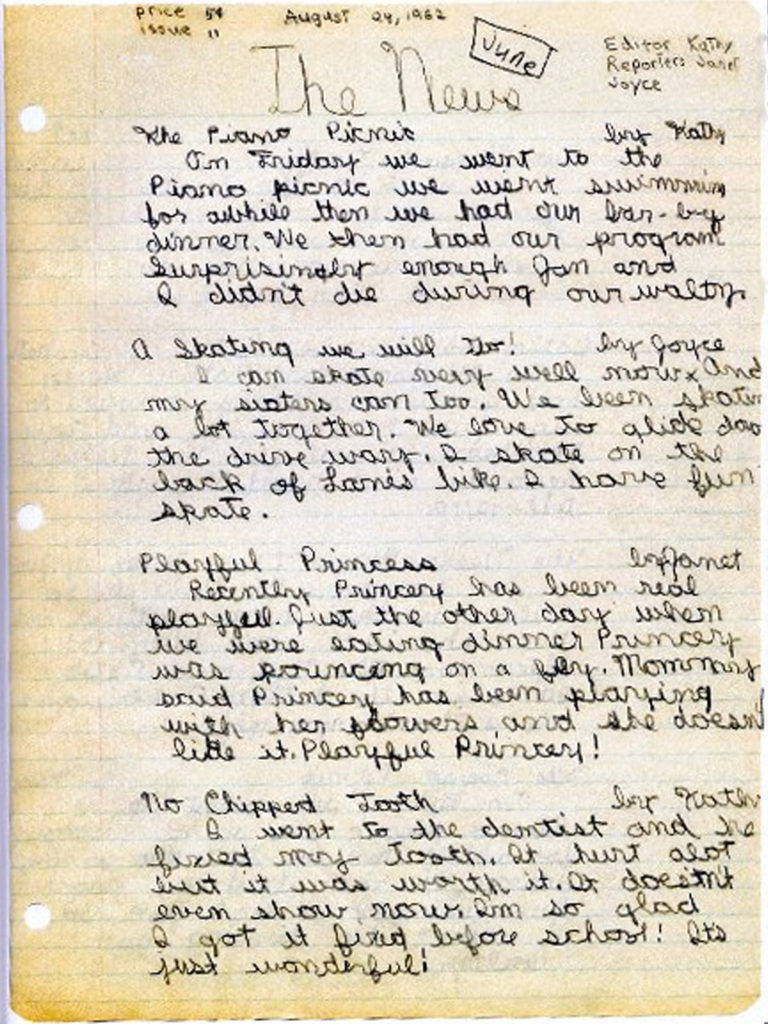 price 5¢
issue 11
August 24, 1962
June
Editor Kathy
Reporters Janet
Joyce
The News
The Piano Picnic by Kathy
On Friday we went to the
Piano picnic we went swimming
for awhile then we had our bar-by
dinner. We then had our program
Surprisingly enough Jan and
I didn't die during our waltz.
A Skating we will Go! by Joyce
I can skate very well now. And
my sisters can too. We been skatin
a lot together. We love to glide dow
the drive way. I skate on the
back of Lanis bike. I have fun
skate.
Playful Princess by Janet
Recently Princey has been real
playful. Just the other day when
we were eating dinner Princey
was pouncing on a fly. Mommy
said Princey has been playing
with her flowers, and she doesn
like it. Playful Princey!
No Chipped Tooth by Kathy
I went to the dentist and he
fixed my tooth. It hurt alot
but it was worth it. It doesn't
even show now. Im so glad
I got it fixed before school! Its
just wonderful!